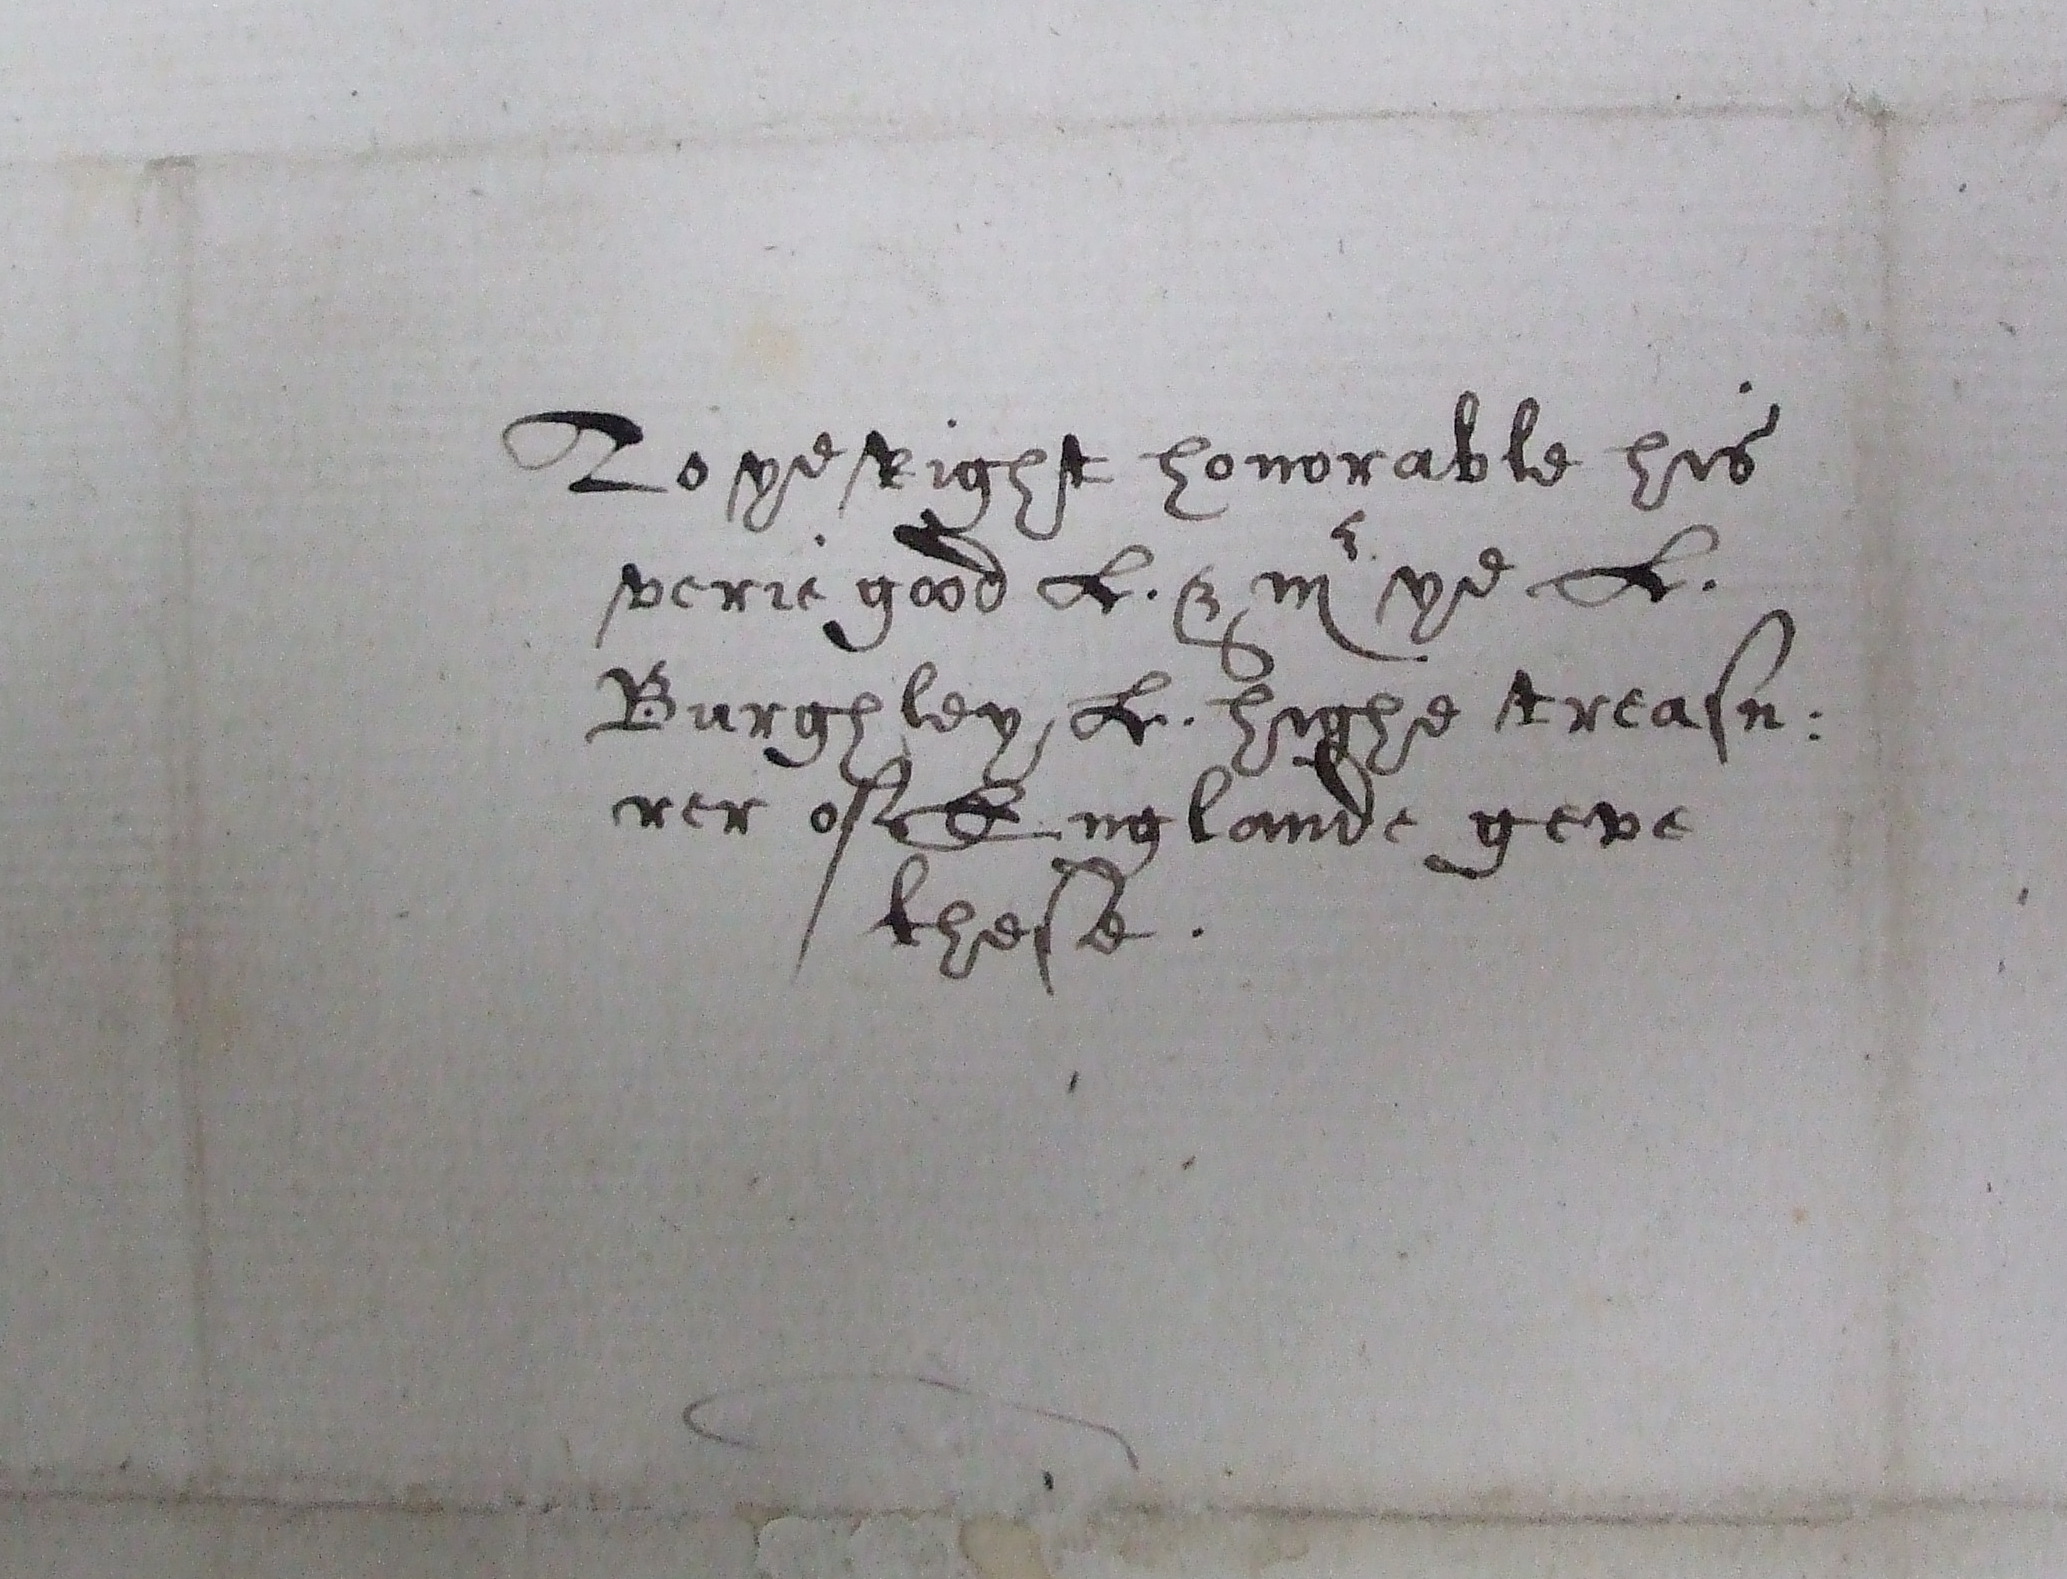 To ye right honorable his
verie good L. & mr ye L.
Burghley, L. highe treasu:
rer of Englande geve
these.